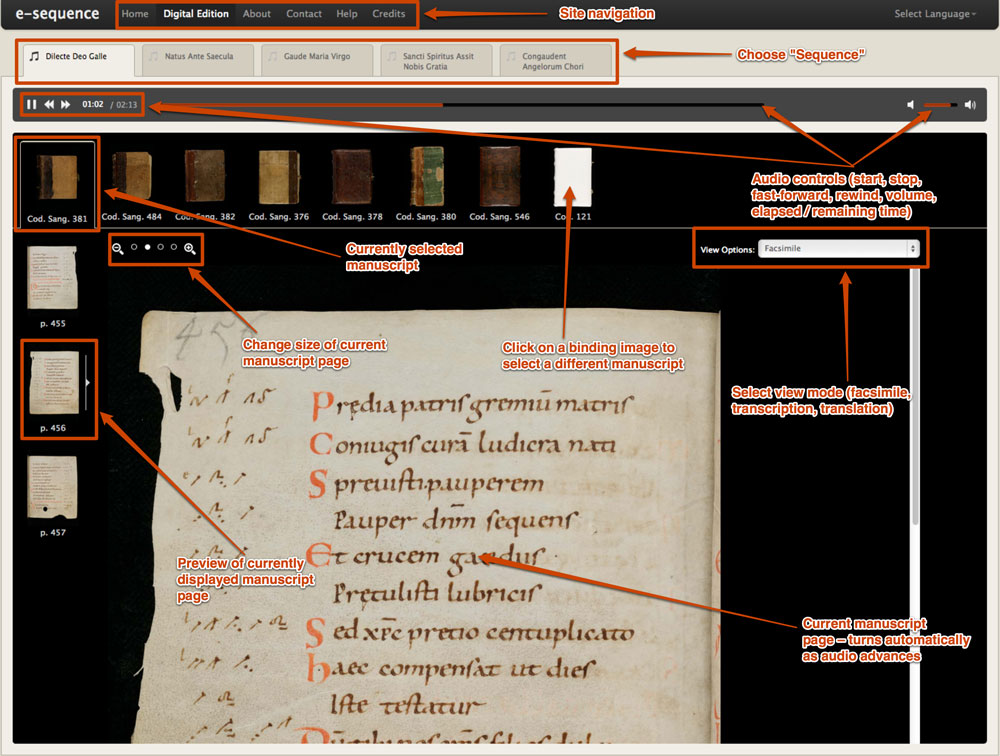 e-sequence Home Digital Edition About Contact Help Credits Site navigation Select Language
Dilecte Deo Galle
Natus Ante Saecula
Gaude Maria Virgo
Sancti Spiritus Assit
Nobis Gratia
Congaudent
Angelorum Chori
Choose "Sequence"
01:02 / 02:13
Audio controls (start, stop,
fast-forward, rewind, volume,
elapsed / remaining time)
Cod. Sang. 381
Cod. Sang. 484
Cod. Sang. 382
Cod. Sang. 376
Cod. Sang. 378
Cod. Sang. 380
Cod. Sang. 546
Cod. 121
Currently selected
manuscript
View Options: Facsimile
p. 455
Change size of current
manuscript page
Click on a binding image to
select a different manuscript
Select view mode (facsimile,
transcription, translation)
p. 456
p. 457
Preview of currently
displayed manuscript
page
Current manuscript
page – turns automatically
as audio advances
Prędia patris gremiū matris
Coniugis curā ludicra nati
Sprevisti pauperem
Pauper dn̄m sequens
Et crucem
Prętulisti lubricis
Sed xp̄c precio centuplicato
haec compensat ut dies
Iste testatur